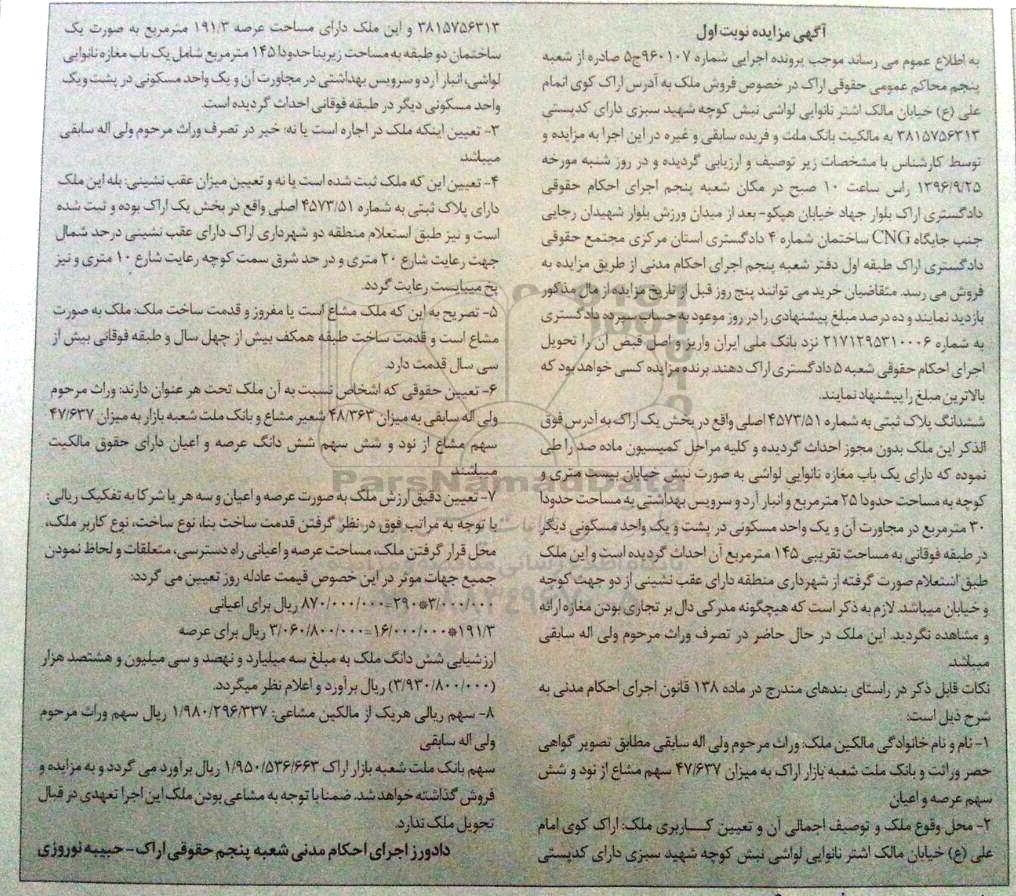 آگهی مزایده نوبت اول
به اطلاع عموم می رساند موجب پرونده اجرایی شماره ۹۶۰۱۰۷ج۵ صادره از شعبه
پنجم محاکم عمومی حقوقی اراک در خصوص فروش ملک به آدرس اراک کوی اتمام
علی (ع) خیابان مالک اشتر نانوایی لواشی نبش کوچه شهید سبزی دارای کدپستی
۳۸۱۵۷۵۶۳۱۳ به مالکیت بانک ملت و فریده سابقی و غیره در این اجرا به مزایده و
توسط کارشناس با مشخصات زیر توصیف و ارزیابی گردیده و در روز شنبه مورخه
۱۳۹۶/۹/۲۵ راس ساعت ۱۰ صبح در مکان شعبه پنجم اجرای احکام حقوقی
دادگستری اراک بلوار جهاد خیابان هپکو-بعد از میدان ورزش بلوار شهیدان رجایی
جنب جایگاه CNG ساختمان شماره ۴ دادگستری استان مرکزی مجتمع حقوقی
دادگستری اراک طبقه اول دفتر شعبه پنجم اجرای احکام مدنی از طریق مزایده به
فروش می رسد. متقاضیان خرید می توانند پنج روز قبل از تاریخ مزایده از مال مذکور
بازدید نمایند و ده درصد مبلغ پیشنهادی را در روز موعود به حساب سپرده دادگستری
به شماره ۲۱۷۱۲۹۵۳۱۰۰۰۶ نزد بانک ملی ایران واریز و اصل قبض آن را تحویل
اجرای احکام حقوقی شعبه ۵ دادگستری اراک دهند. برنده مزایده کسی خواهد بود که
بالاترین مبلغ را پیشنهاد نمایند.
ششدانگ پلاک ثبتی به شماره ۴۵۷۳/۵۱ اصلی واقع در بخش یک اراک به آدرس فوق
الذکر این ملک بدون مجوز احداث گردیده و کلیه مراحل کمیسیون ماده صد را طی
نموده که دارای یک باب مغازه نانوایی لواشی به صورت نبش خیابان بیست متری و
کوچه به مساحت حدودا ۲۵ مترمربع و انبار آرد و سرویس بهداشتی به مساحت حدودا
۳۰ مترمربع در مجاورت آن و یک واحد مسکونی در پشت و یک واحد مسکونی دیگر
در طبقه فوقانی به مساحت تقریبی ۱۴۵ مترمربع آن احداث گردیده است و این ملک
طبق استعلام صورت گرفته از شهرداری منطقه دارای عقب نشینی از دو جهت کوچه
و خیابان میباشد. لازم به ذکر است که هیچگونه مدرکی دال بر تجاری بودن مغازه ارائه
و مشاهده نگردید. این ملک در حال حاضر در تصرف وراث مرحوم ولی اله سابقی
میباشد.
نکات قابل ذکر در راستای بندهای مندرج در ماده ۱۳۸ قانون اجرای احکام مدنی به
شرح ذیل است:
۱- نام و نام خانوادگی مالکین ملک: وراث مرحوم ولی اله سابقی مطابق تصویر گواهی
حصر وراثت و بانک ملت شعبه بازار اراک به میزان ۴۷/۶۳۷ سهم مشاع از نود و شش
سهم عرصه و اعیان
۲- محل وقوع ملک و توصیف اجمالی آن و تعیین کـــاربری ملک: اراک کوی امام
علی (ع) خیابان مالک اشتر نانوایی لواشی نبش کوچه شهید سبزی دارای کدپستی
۳۸۱۵۷۵۶۳۱۳ و این ملک دارای مساحت عرصه ۱۹۱/۳ مترمربع به صورت یک
ساختمان دو طبقه به مساحت زیربنا حدودا ۱۴۵ مترمربع شامل یک باب مغازه نانوایی
لواشی، انبار آرد و سرویس بهداشتی در مجاورت آن و یک واحد مسکونی در پشت و یک
واحد مسکونی دیگر در طبقه فوقانی احداث گردیده است.
۳- تعیین اینکه ملک در اجاره است یا نه: خیر در تصرف وراث مرحوم ولی اله سابقی
میباشد
۴- تعیین این که ملک ثبت شده است یا نه و تعیین میزان عقب نشینی: بله این ملک
دارای پلاک ثبتی به شماره ۴۵۷۳/۵۱ اصلی واقع در بخش یک اراک بوده و ثبت شده
است و نیز طبق استعلام منطقه دو شهرداری اراک دارای عقب نشینی درحد شمال
جهت رعایت شارع ۲۰ متری و در حد شرق سمت کوچه رعایت شارع ۱۰ متری و نیز
پخ میبایست رعایت گردد.
۵- تصریح به این که ملک مشاع است یا مفروز و قدمت ساخت ملک: ملک به صورت
مشاع است و قدمت ساخت طبقه همکف بیش از چهل سال و طبقه فوقانی بیش از
سی سال قدمت دارد.
۶- تعیین حقوقی که اشخاص نسبت به آن ملک تحت هر عنوان دارند: وراث مرحوم
ولی اله سابقی به میزان ۴۸/۳۶۳ شعیر مشاع و بانک ملت شعبه بازار به میزان ۴۷/۶۳۷
سهم مشاع از نود و شش سهم شش دانگ عرصه و اعیان دارای حقوق مالکیت
میباشند
۷- تعیین دقیق ارزش ملک به صورت عرصه و اعیان و سه هر یا شرکا به تفکیک ریالی:
با توجه به مراتب فوق در نظر گرفتن قدمت ساخت بنا، نوع ساخت، نوع کاربر ملک،
محل قرار گرفتن ملک، مساحت عرصه و اعیانی راه دسترسی، متعلقات و لحاظ نمودن
جمیع جهات موثر در این خصوص قیمت عادله روز تعیین می گردد:
۳/۰۰۰/۰۰۰*۲۹۰=۸۷۰/۰۰۰/۰۰۰ ریال برای اعیانی
۱۹۱/۳*۱۶/۰۰۰/۰۰۰=۳/۰۶۰/۸۰۰/۰۰۰ ریال برای عرصه
ارزشیابی شش دانگ ملک به مبلغ سه میلیارد و نهصد و سی میلیون و هشتصد هزار
(۳/۹۳۰/۸۰۰/۰۰۰) ریال برآورد و اعلام نظر میگردد.
۸- سهم ریالی هریک از مالکین مشاعی: ۱/۹۸۰/۲۹۶/۳۳۷ ریال سهم وراث مرحوم
ولی اله سابقی
سهم بانک ملت شعبه بازار اراک ۱/۹۵۰/۵۳۶/۶۶۳ ریال برآورد می گردد و به مزایده و
فروش گذاشته خواهد شد. ضمنا با توجه به مشاعی بودن ملک این اجرا تعهدی در قبال
تحویل ملک ندارد.
دادورز اجرای احکام مدنی شعبه پنجم حقوقی اراک - حبیبه نوروزی
ParsNamadData